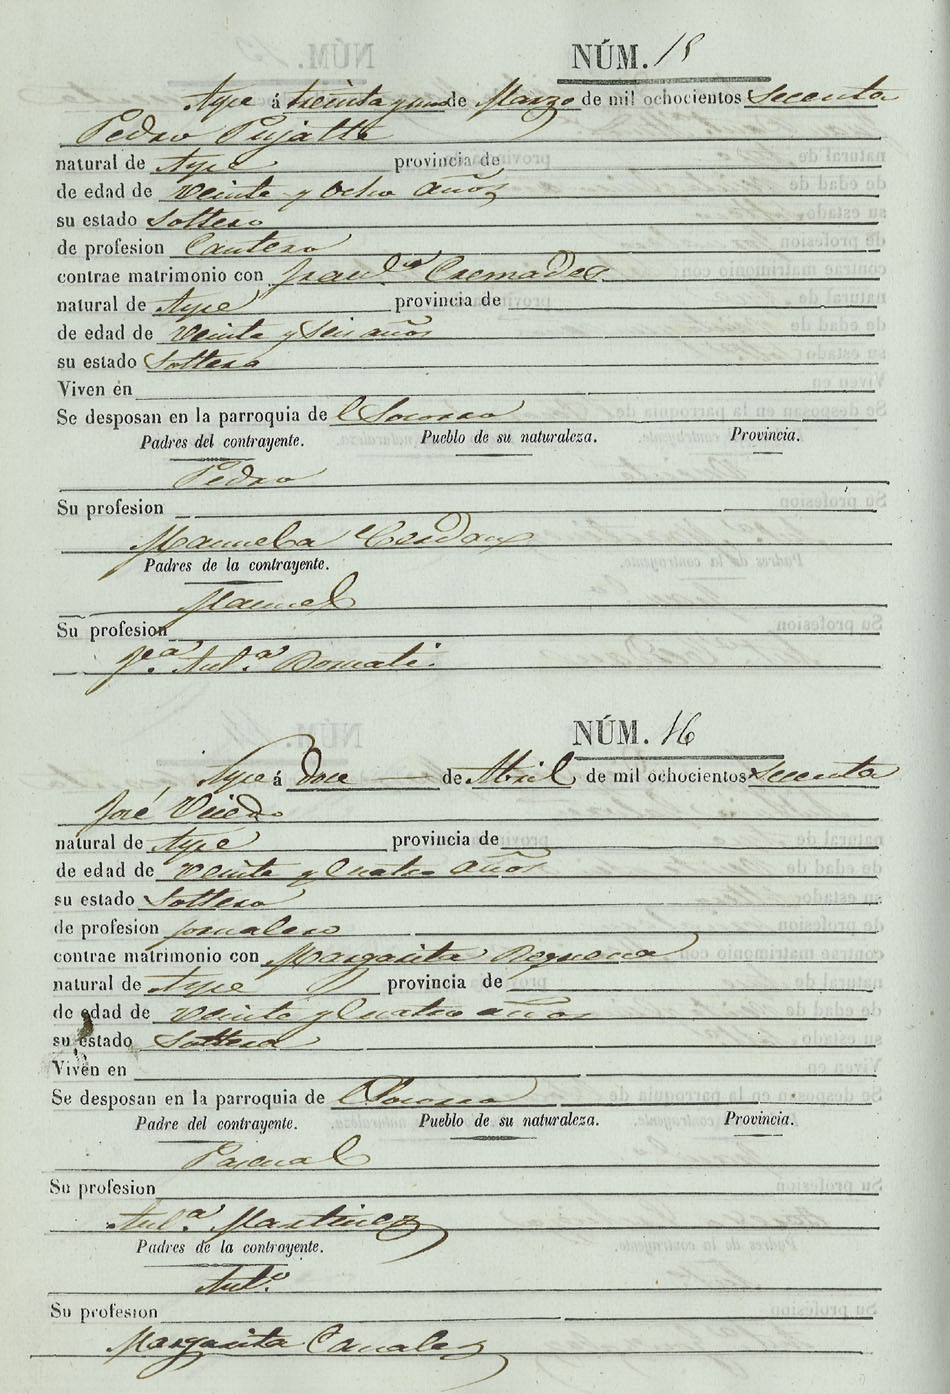 NÚM. 15
Aspe á treinta y uno de Marzo de mil ochocientos secenta
Pedro Pujalte
natural de Aspe provincia de
de edad de Veinte y Ocho años
su estado Soltero
de profesion Cantero
contrae matrimonio con Fran.ca Cremades
natural de Aspe provincia de
de edad de Veinte y Seis años
su estado Soltera
Viven en
Se desposan en la parroquia de el Socorro
Padres del contrayente. Pueblo de su naturaleza. Provincia.
Pedro
Su profesion
Manuela Cerdan
Padres de la contrayente.
Manuel
Su profesion
J.a Ant.a
NÚM. 16
Aspe á doce de Abril de mil ochocientos secenta
José
natural de Aspe provincia de
de edad de Veinte y Cuatro años
su estado Soltero
de profesion jornalero
contrae matrimonio con Margarita Requena
natural de Aspe provincia de
de edad de Veinte y Cuatro años
su estado Soltera
Viven en
Se desposan en la parroquia de el Socorro
Padre del contrayente. Pueblo de su naturaleza. Provincia.
Pascual
Su profesion
Ant.a Martinez
Padres de la contrayente.
Ant.o
Su profesion
Margarita Canales